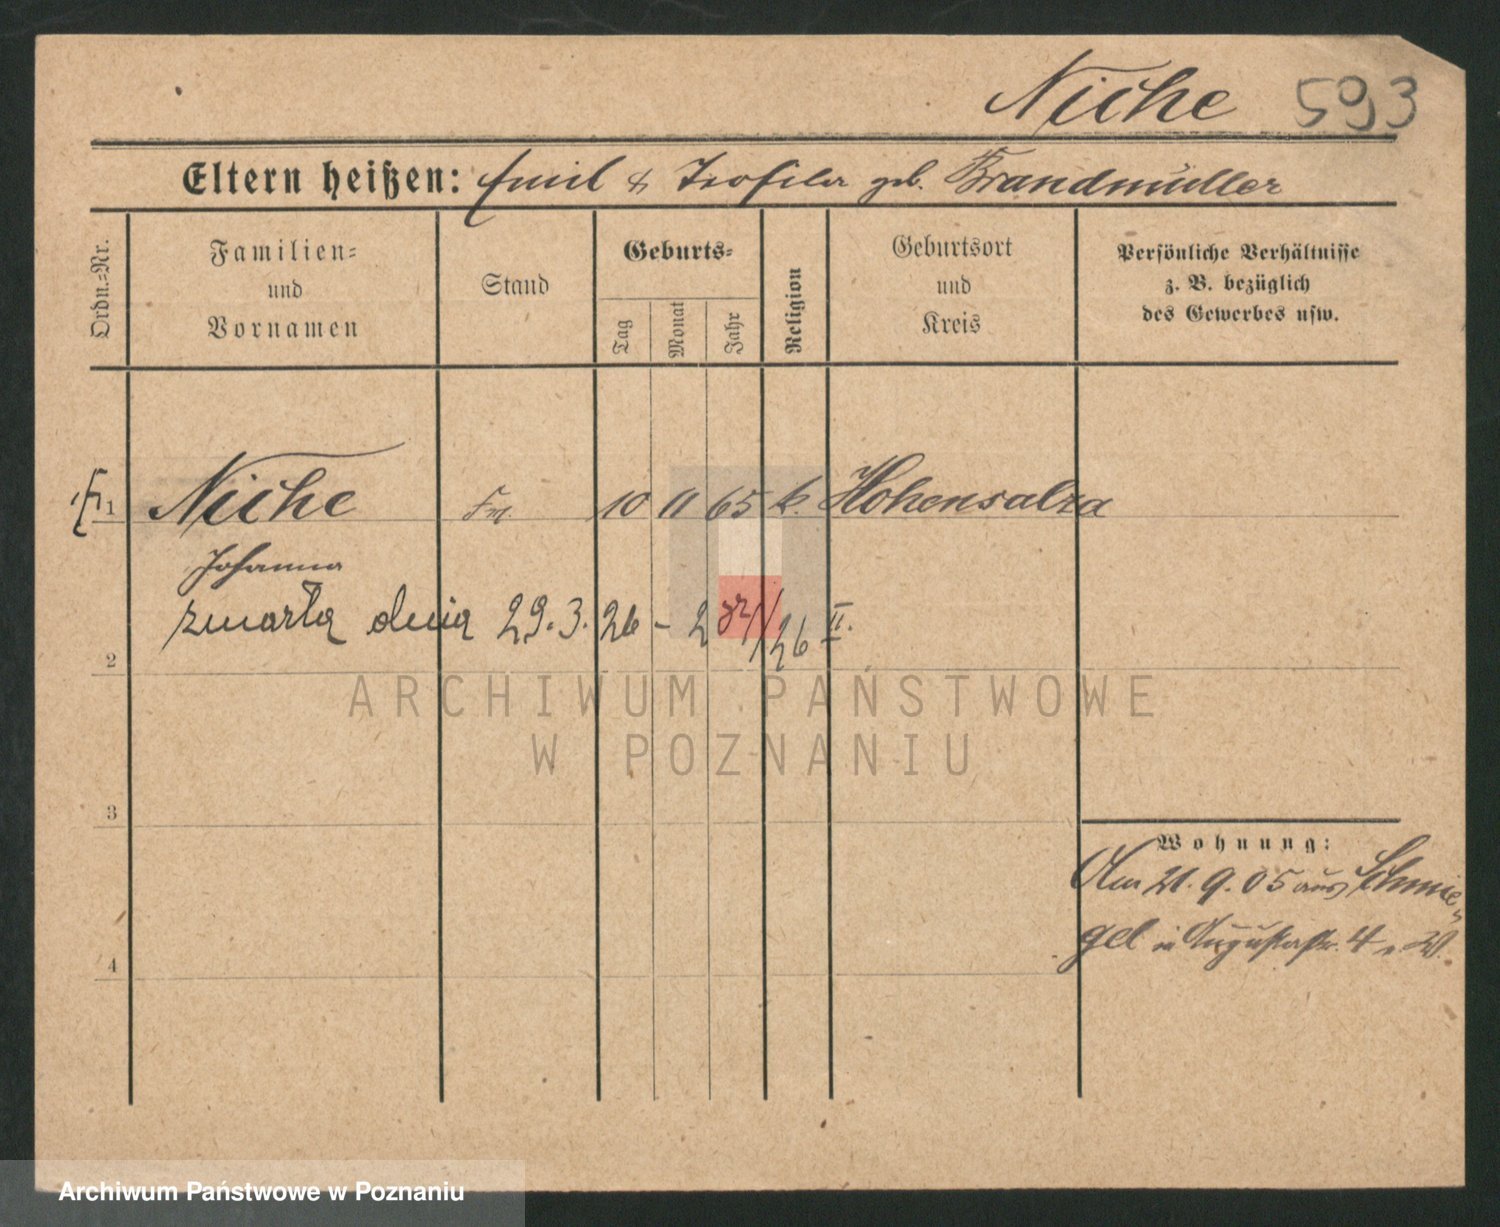 Niche 593
Eltern heißen: Emil & Teofila geb. Brandmüller
Ordn.-Nr.
Familien-
und
Vornamen
Stand
Geburts-
Tag
Monat
Jahr
Religion
Geburtsort
und
Kreis
Persönliche Verhältnisse
z. B. bezüglich
des Gewerbes usw.
1 Niche 10 11 65 k. Hohensalza
Johanna
zmarła dnia 29.3.26 - 26 II.
2
ARCHIWUM PAŃSTWOWE
W POZNANIU
3
Wohnung:
Am 21.9.05 aus Schmie-
gel in Augustastr. 4
4
Archiwum Państwowe w Poznaniu